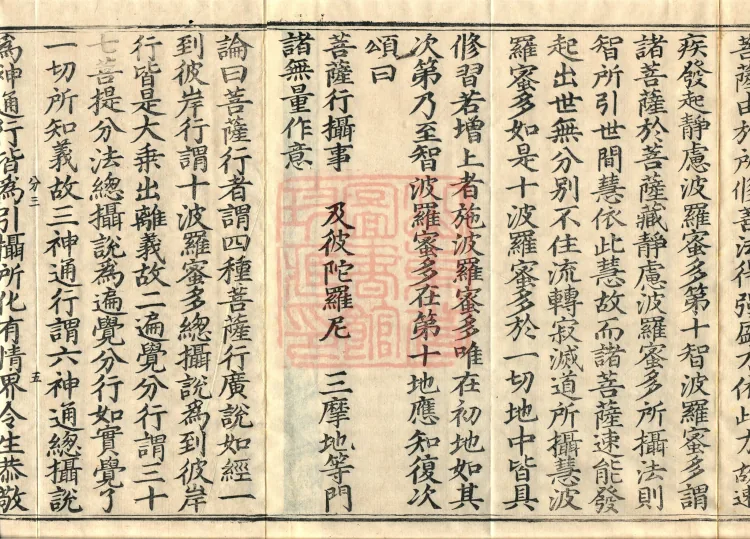 菩薩由於所修善法得強盛力依此力故速
疾發起靜慮波羅蜜多第十智波羅蜜多謂
諸菩薩於菩薩藏靜慮波羅蜜多所攝法則
智所引世間慧依此慧故而諸菩薩速能發
起出世無分別不住流轉寂滅道所攝慧波
羅蜜多如是十波羅蜜多於一切地中皆具
修習若增上者施波羅蜜多唯在初地如其
次第乃至智波羅蜜多在第十地應知復次
頌曰
菩薩行攝事 及彼陀羅尼 三摩地等門
諸無量作意
論曰菩薩行者謂四種菩薩行廣說如經一
到彼岸行謂十波羅蜜多總攝說為到彼岸
行皆是大乘出離義故二遍覺分行謂三十
七菩提分法總攝說為遍覺分行如實覺了
一切所知義故三神通行謂六神通總攝說
分三 五
為神通行皆為引攝所化有情界令生恭敬